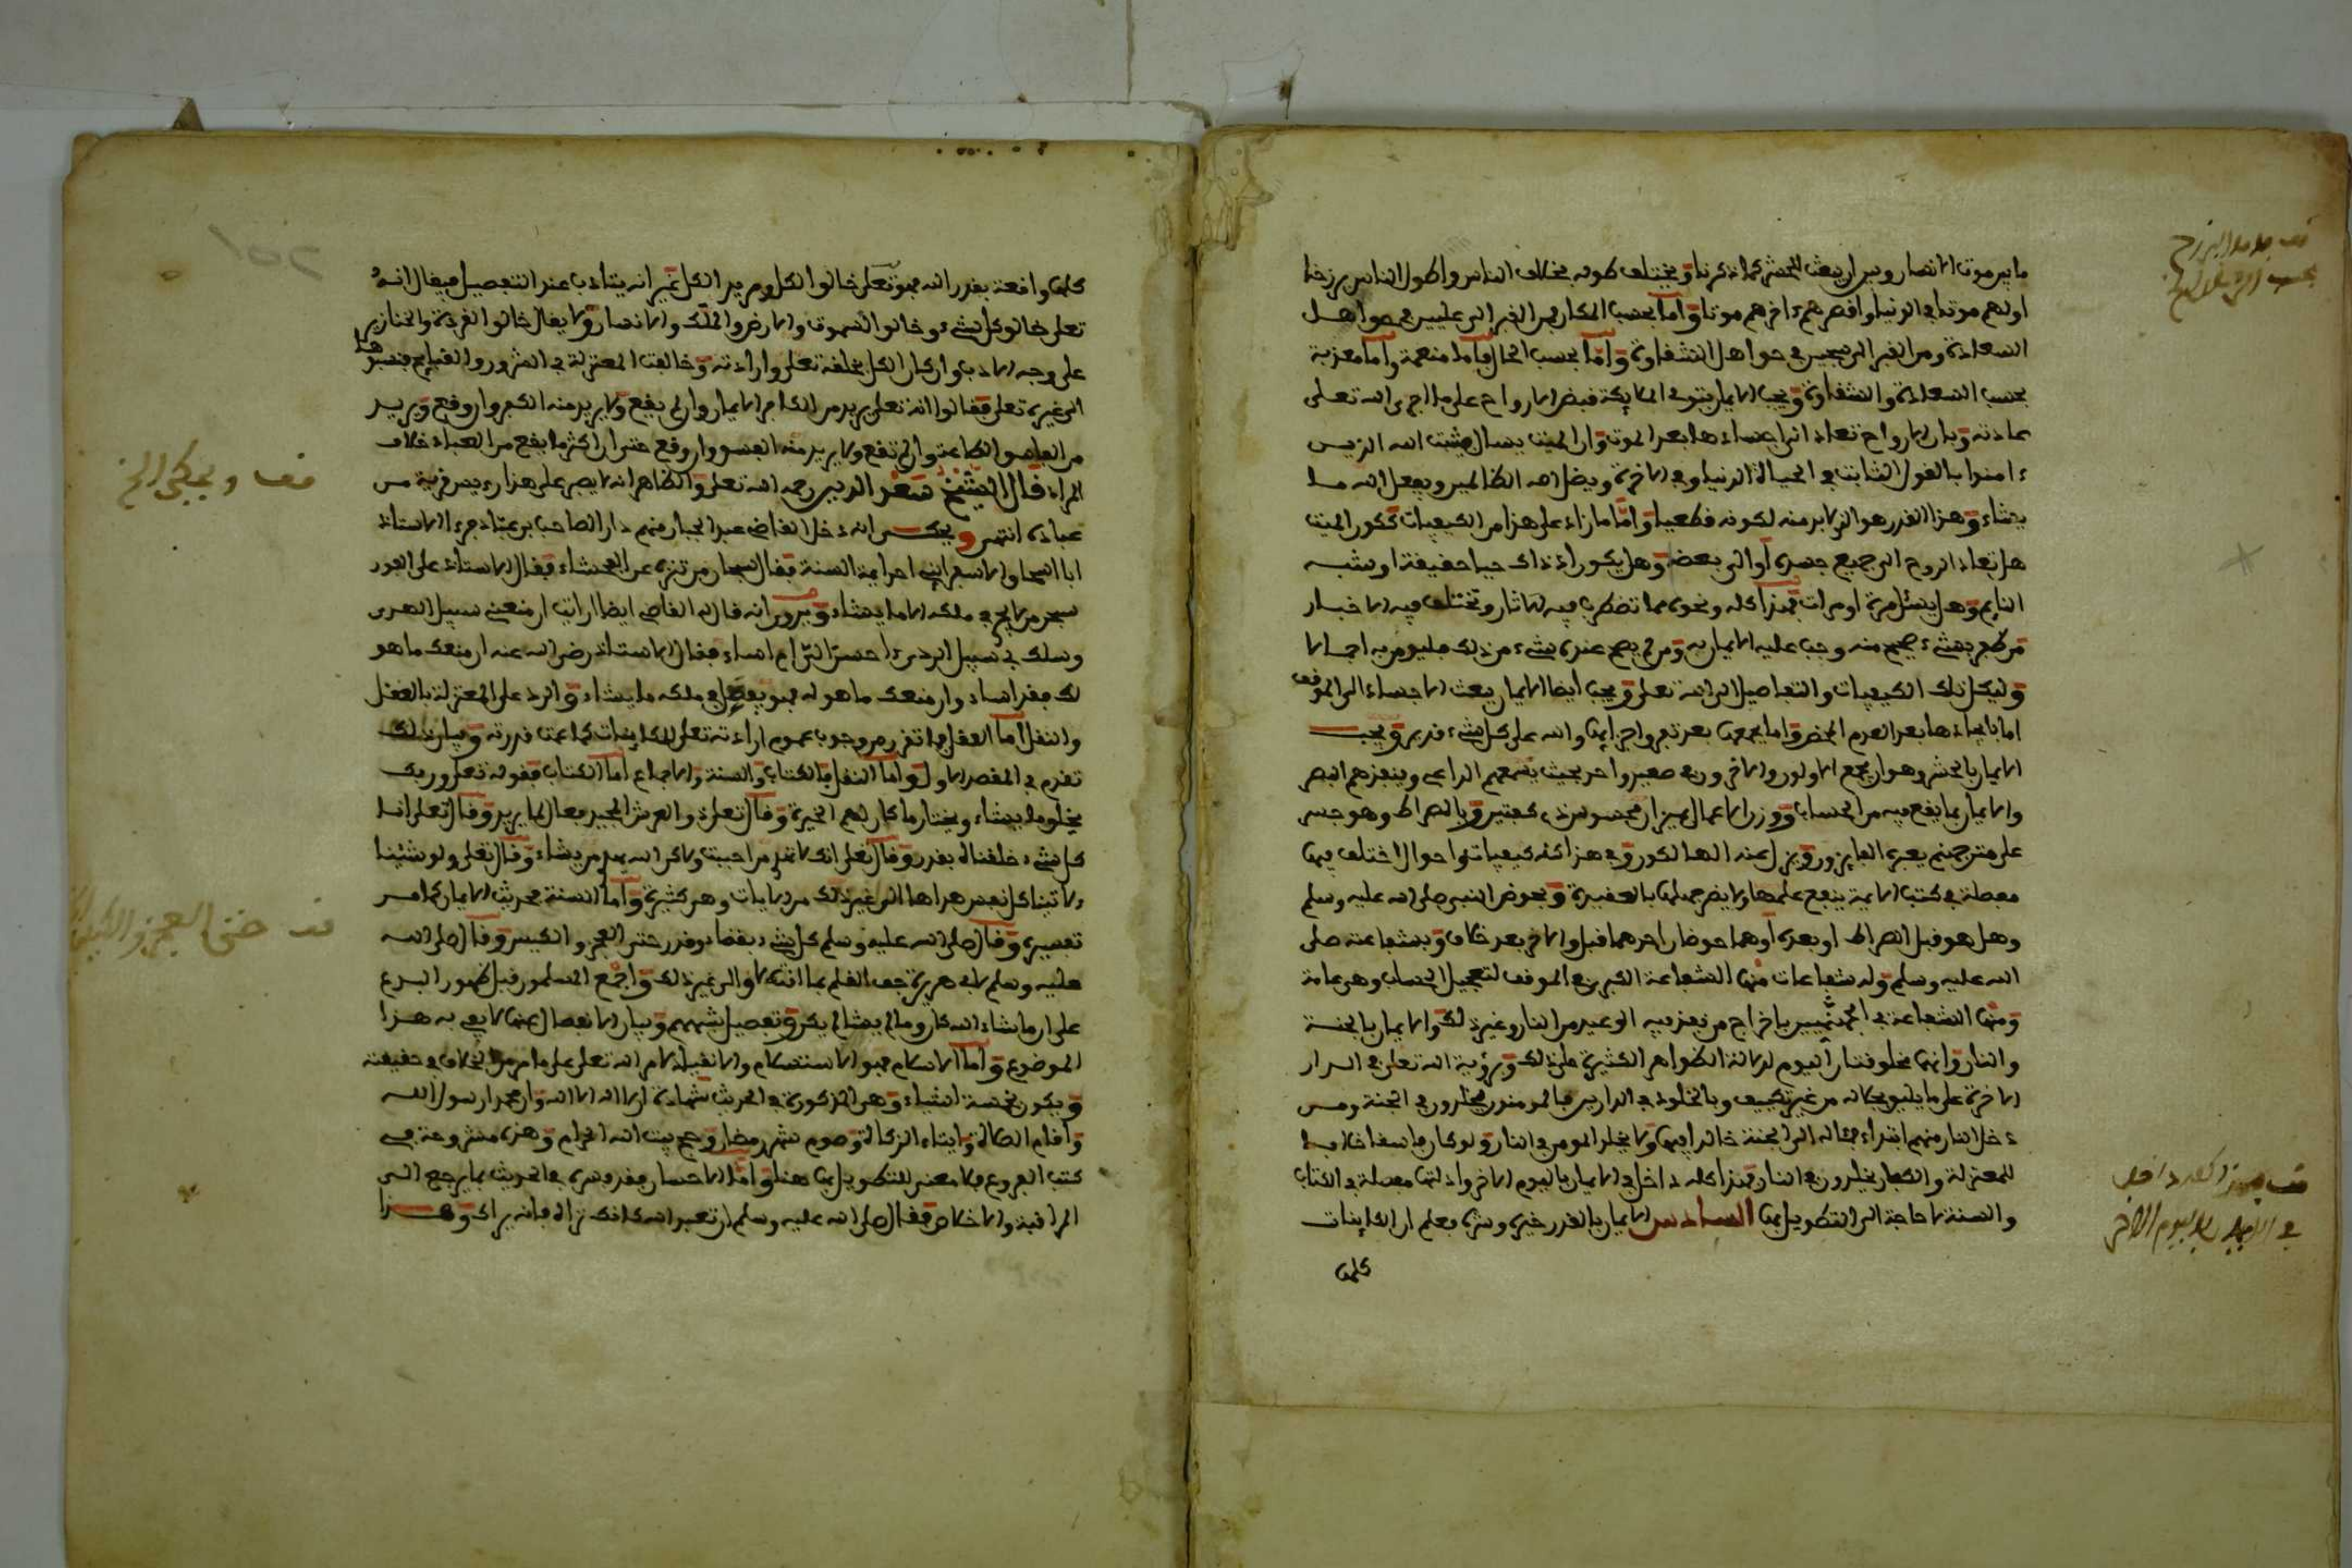 ما بين موت الانسان وبين ان يبعث للحشر كما ذكرنا ويختلف طوله بخلاف الناس واطول الناس برزخا
اولهم موتا في الدنيا واقصرهم ءاخرهم موتا واما بحسب المكان فمن القبر الى عليين في حق اهل
السعادة ومن القبر الى سجين في حق اهل الشقاوة واما بحسب الحال فاما منعمة واما معذبة
بحسب السعادة والشقاوة ويجب الايمان بتوفي الملائكة قبض الارواح على ما اجرى الله تعلى
عادته وبان الارواح تعاد الى اجسادها بعد الموت وان الميت يسال يثبت الله الذين
ءامنوا بالقول الثابت في الحياة الدنيا وفي الاخرة ويضل الله الظالمين ويفعل الله ما
يشاء وهذا القدر هو الذي لا بد منه لكونه قطعيا واما ما زاد على هذا من الكيفيات ككون الميت
هل تعاد الروح الى جميع جسده او الى بعضه وهل يكون اذ ذاك حيا حقيقة او يشبه
النايم وهل يسئل مرة او مرات فهذا كله ونحوه مما تضطرب فيه الاثار وتختلف فيه الاخبار
فمن طعم بشيء صحيح منه وجب عليه الايمان به ومن لم يصح عنده شيء من ذلك فليومن به اجمالا
وليكل تلك الكيفيات والتفاصيل الى الله تعلى ويجب ايضا الايمان ببعث الاجساد الى الموقف
اما بايجادها بعد العدم المحض واما بجمعها بعد تفرق اجزائها والله على كل شيء قدير ويجب
الايمان بالحشر وهو ان يجمع الاولون والاخرون في صعيد واحد بحيث يسمعهم الداعي وينفذهم البصر
والايمان بما يقع فيه من الحساب ووزن الاعمال بميزان محسوس ذي كفتين وبالصراط وهو جسر
على متن جهنم يعبره الفايزون ويزل عنه الهالكون وفي هذا كله كيفيات واحوال اختلف فيها
مفصلة في كتب الايمة ينفع علمها ولا يضر جهلها بالعقيدة وبحوض النبي صلى الله عليه وسلم
وهل هو قبل الصراط او بعده او هما حوضان احدهما قبل والاخر بعد خلاف وبشفاعته صلى
الله عليه وسلم وله شفاعات منها الشفاعة الكبرى في الموقف لتعجيل الحساب وهي عامة
ومنها الشفاعة في الجهنميين باخراج من نفذ فيه الوعيد من النار وغير ذلك والايمان بالجنة
والنار وانهما مخلوقتان اليوم لدلالة الظواهر الكثيرة على ذلك وبرؤية الله تعلى في الدار
الاخرة على ما يليق بجلاله من غير تكييف وبالخلود في الدارين فالمومنون يخلدون في الجنة ومن
دخل النار منهم ابتداء فمئاله الى الجنة خالدا فيها ولا يخلد المومن في النار ولو كان فاسقا خلافا
للمعتزلة والكفار يخلدون في النار فهذا كله داخل في الايمان باليوم الاخر وادلتها مفصلة في الكتاب
والسنة لا حاجة الى التطويل بها السادس الايمان بالقدر خيره وشره فيعلم ان الكاينات
كلها
قف هذا كله داخل
في الايمان باليوم الاخر
كلها واقعة بقدر الله فهو تعلى خالق الكل ومريد الكل غير انه يتادب عند التفصيل فيقال انه
تعلى خالق كل شيء وخالق السموت والارض والملك والانسان ولا يقال خالق القردة والخنازير
على وجه الادب وان كان الكل بخلقه تعلى وارادته وخالفت المعتزلة في الشرور والقبايح فنسبوها
الى غيره تعلى فقالوا انه تعلى يريد من الكافر الايمان وان لم يقع ولا يريد منه الكفر وان وقع ويريد
من الفاسق الطاعة وان لم تقع ولا يريد منه الفسق وان وقع حتى ان اكثر ما يقع من العباد خلاف
المراد قال الشيخ سعد الدين رحمه الله تعلى والظاهر انه لا يصبر على هذا رءيس قرية من
عباده انتهى ويحكى انه دخل القاضي عبد الجبار منهم دار الصاحب بن عباد فرءا الاستاذ
ابا اسحاق الاسفرايني احد ايمة السنة فقال سبحان من تنزه عن الفحشاء فقال الاستاذ على الفور
سبحن من لا يجري في ملكه الا ما يشاء ويروى انه قال له القاضي ايضا ارايت ان منعني سبيل الهدى
وسلك بي سبيل الردى ءاحسن الي ام اساء فقال الاستاذ رضي الله عنه ان منعك ما هو
لك فقد اساء وان منعك ما هو له فهو يفعل في ملكه ما يشاء والرد على المعتزلة بالعقل
والنقل اما العقل فما تقرر من وجوب عموم ارادته تعلى للكاينات كما عمت قدرته وبيان ذلك
تقدم في المقصد الاول واما النقل فالكتاب والسنة والاجماع اما الكتاب فقوله تعلى وربك
يخلق ما يشاء ويختار ما كان لهم الخيرة وقال تعلى ذو العرش المجيد فعال لما يريد وقال تعلى انا
كل شيء خلقناه بقدر وقال تعلى انك لا تهدي من احببت ولكن الله يهدي من يشاء وقال تعلى ولو شئنا
ءلاتينا كل نفس هداها الى غير ذلك من الايات وهي كثيرة واما السنة فحديث الايمان كما مر
تفسيره وقال صلى الله عليه وسلم كل شيء بقضاء وقدر حتى العجز والكيس وقال صلى الله
عليه وسلم لابي هريرة جف القلم بما انت لاق الى غير ذلك واجمع المسلمون قبل ظهور البدع
على ان ما شاء الله كان وما لم يشا لم يكن وتفصيل شبههم وبيان الانفصال عنها لا يفي به هذا
الموضوع واما الاسلام فهو الاستسلام والانقياد لامر الله تعلى على ما مر من الخلاف في حقيقته
ويكون بخمسة اشياء وهي المذكورة في الحديث شهادة ان لا اله الا الله وان محمدا رسول الله
واقام الصلاة وايتاء الزكاة وصوم شهر رمضان وحج بيت الله الحرام وهذه مشروحة في
كتب الفروع فلا معنى للتطويل بها هنا واما الاحسان فقد فسره في الحديث بما يرجع الى
المراقبة والاخلاص فقال صلى الله عليه وسلم ان تعبد الله كانك تراه فانه يراك وهذا
قف ويحكى الخ
قف حتى العجز والكيس